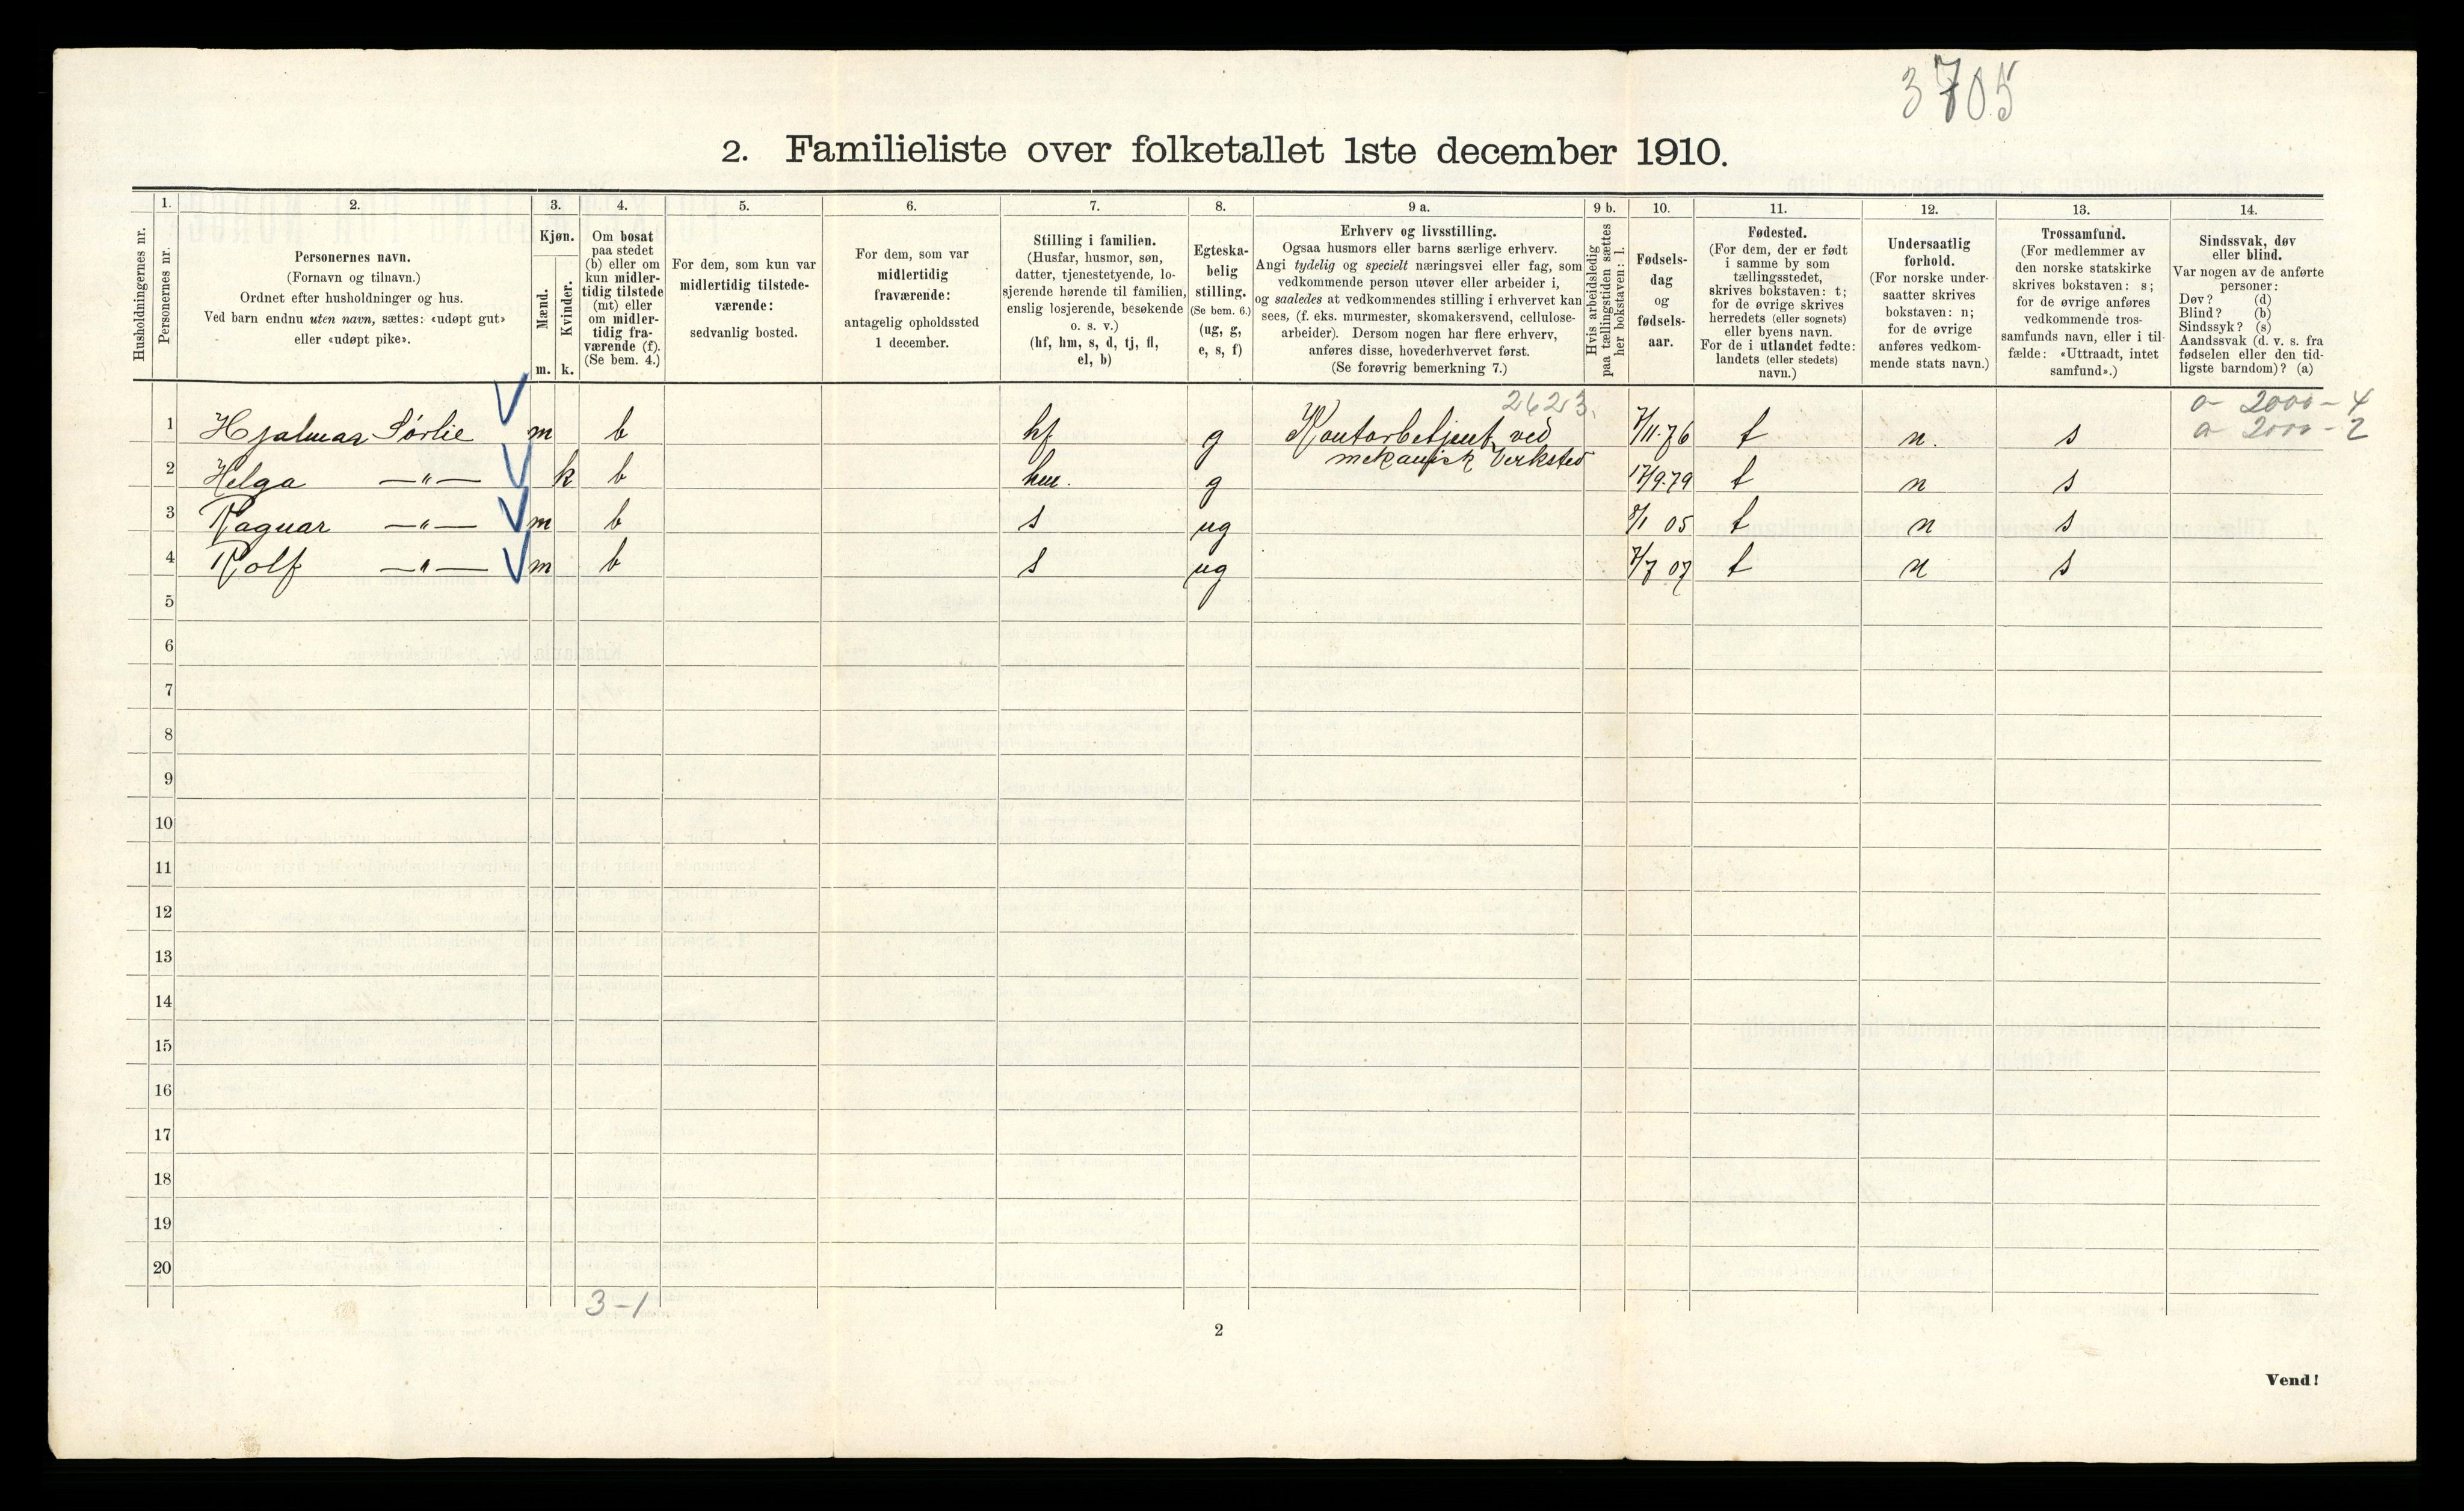 3705
2. Familieliste over folketallet 1ste december 1910.
Husholdningernes nr.
1.
Personernes nr.
2.
Personernes navn.
(Fornavn og tilnavn.)
Ordnet efter husholdninger og hus.
Ved barn endnu uten navn, sættes: «udøpt gut»
eller «udøpt pike».
3.
Kjøn.
Mænd.
m.
Kvinder.
k.
4.
Om bosat
paa stedet
(b) eller om
kun midler-
tidig tilstede
(mt) eller
om midler-
tidig fra-
værende (f).
(Se bem. 4.)
5.
For dem, som kun var
midlertidig tilstede-
værende:
sedvanlig bosted.
6.
For dem, som var
midlertidig
fraværende:
antagelig opholdssted
1 december.
7.
Stilling i familien.
(Husfar, husmor, søn,
datter, tjenestetyende, lo-
sjerende hørende til familien,
enslig losjerende, besøkende
o. s. v.)
(hf, hm, s, d, tj, fl,
el, b)
8.
Egteska-
belig
stilling.
(Se bem. 6.)
(ug, g,
e, s, f)
9 a.
Erhverv og livsstilling.
Ogsaa husmors eller barns særlige erhverv.
Angi tydelig og specielt næringsvei eller fag, som
vedkommende person utøver eller arbeider i,
og saaledes at vedkommendes stilling i erhvervet kan
sees, (f. eks. murmester, skomakersvend, cellulose-
arbeider). Dersom nogen har flere erhverv,
anføres disse, hovederhvervet først.
(Se forøvrig bemerkning 7.)
9 b.
Hvis arbeidsledig
paa tællingstiden sættes
her bokstaven: l.
10.
Fødsels-
dag
og
fødsels-
aar.
11.
Fødested.
(For dem, der er født
i samme by som
tællingsstedet,
skrives bokstaven: t;
for de øvrige skrives
herredets (eller sognets)
eller byens navn.
For de i utlandet fødte:
landets (eller stedets)
navn.)
12.
Undersaatlig
forhold.
(For norske under-
saatter skrives
bokstaven: n;
for de øvrige
anføres vedkom-
mende stats navn.)
13.
Trossamfund.
(For medlemmer av
den norske statskirke
skrives bokstaven: s;
for de øvrige anføres
vedkommende tros-
samfunds navn, eller i til-
fælde: «Uttraadt, intet
samfund».)
14.
Sindssvak, døv
eller blind.
Var nogen av de anførte
personer:
Døv? (d)
Blind? (b)
Sindssyk? (s)
Aandssvak (d. v. s. fra
fødselen eller den tid-
ligste barndom)? (a)
2623. 0 - 2000 - 4
1 Hjalmar Sørlie m b hf g Kontorbetjent ved 7/11.76 t n. s 0 - 2000 - 2
mekanisk Verksted
2 Helga —"— k b hm. g 17/9.79 t n s
3 Ragnar —"— m b s ug 8/1 05 t n s
4 Rolf —"— m b s ug 7/7 07 t n s
5
6
7
8
9
10
11
12
13
14
15
16
17
18
19
20
3-1
2
Vend!